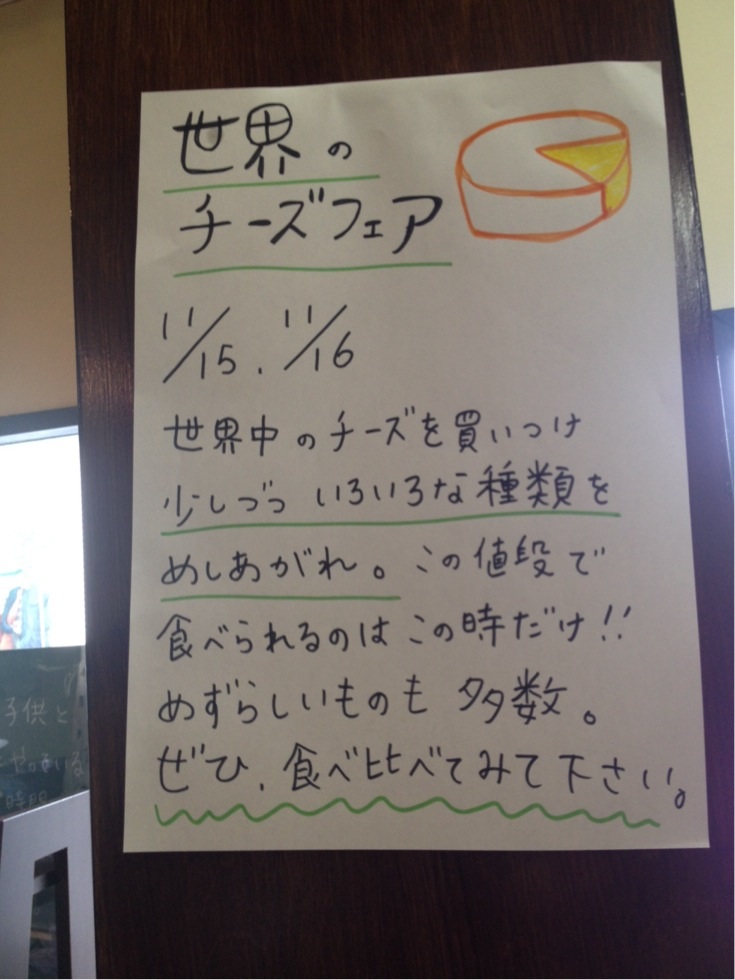 世界の
チーズフェア
11/15、11/16
世界中のチーズを買いつけ
少しづつ いろいろな種類を
めしあがれ。この値段で
食べられるのはこの時だけ!!
めずらしいものも 多数。
ぜひ、食べ比べてみて下さい。
子供と
時間